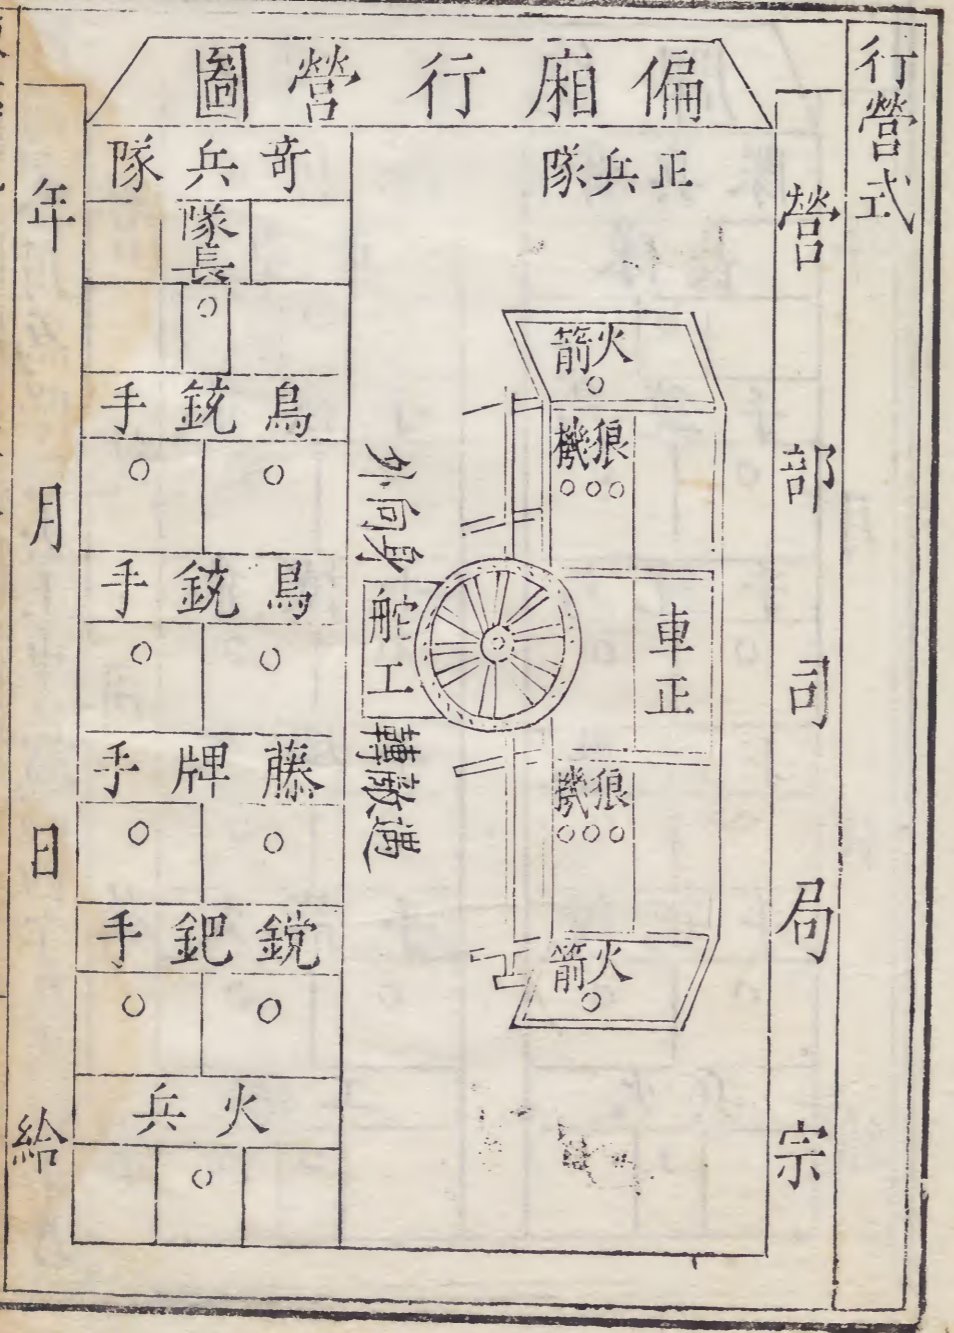 行營式
營部司局宗
偏廂行營圖
正兵隊
火箭
狼機
車正
狼機
火箭
舵工
遇敵轉身向外
奇兵隊
隊長
鳥銃手
鳥銃手
藤牌手
鎲鈀手
火兵
年月日給